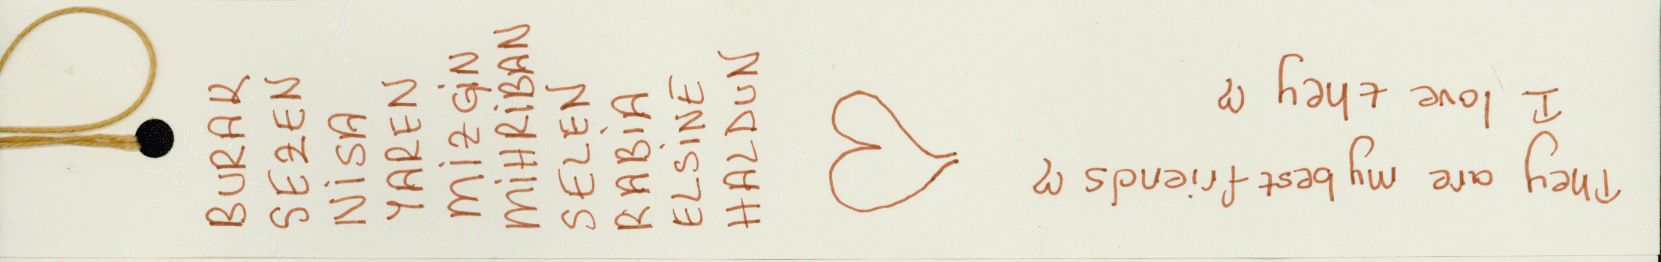 BURAK
SEZEN
NİSA
YAREN
MİZGİN
MİHRİBAN
SELEN
RABİA
ELSİNE
HALDUN
They are my best friends ♡
I love they ♡